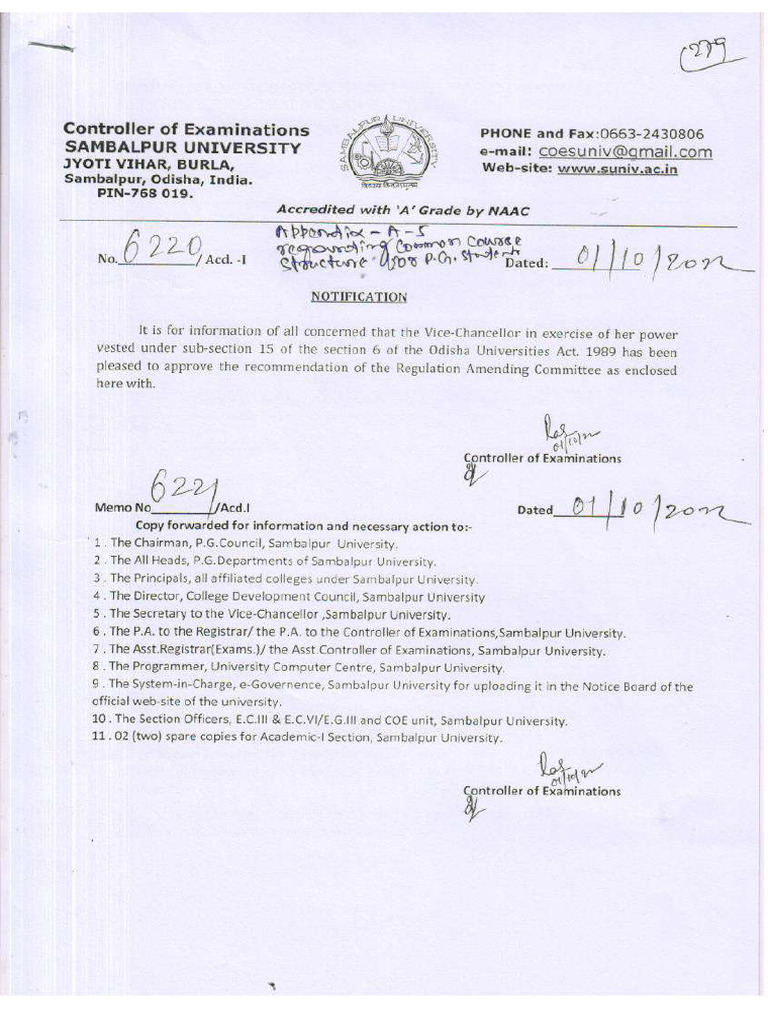 279
Controller of Examinations
SAMBALPUR UNIVERSITY
JYOTI VIHAR, BURLA,
Sambalpur, Odisha, India.
PIN-768 019.
SAMBALPUR UNIVERSITY
PHONE and Fax:0663-2430806
e-mail: coesuniv@gmail.com
Web-site: www.suniv.ac.in
Accredited with 'A' Grade by NAAC
Appendix - A-5
regarding Common Course
structure for P.G. Students
No. 6220 / Acd. -I
Dated: 01/10/2022
NOTIFICATION
It is for information of all concerned that the Vice-Chancellor in exercise of her power
vested under sub-section 15 of the section 6 of the Odisha Universities Act. 1989 has been
pleased to approve the recommendation of the Regulation Amending Committee as enclosed
here with.
01/10/22
Controller of Examinations
Memo No 6221 /Acd.I
Dated 01/10/2022
Copy forwarded for information and necessary action to:-
1 . The Chairman, P.G.Council, Sambalpur University.
2 . The All Heads, P.G.Departments of Sambalpur University.
3 . The Principals, all affiliated colleges under Sambalpur University.
4 . The Director, College Development Council, Sambalpur University
5 . The Secretary to the Vice-Chancellor ,Sambalpur University.
6 . The P.A. to the Registrar/ the P.A. to the Controller of Examinations,Sambalpur University.
7 . The Asst.Registrar(Exams.)/ the Asst.Controller of Examinations, Sambalpur University.
8 . The Programmer, University Computer Centre, Sambalpur University.
9 . The System-in-Charge, e-Governence, Sambalpur University for uploading it in the Notice Board of the
official web-site of the university.
10 . The Section Officers, E.C.III & E.C.VI/E.G.III and COE unit, Sambalpur University.
11 . 02 (two) spare copies for Academic-I Section, Sambalpur University.
01/10/22
Controller of Examinations